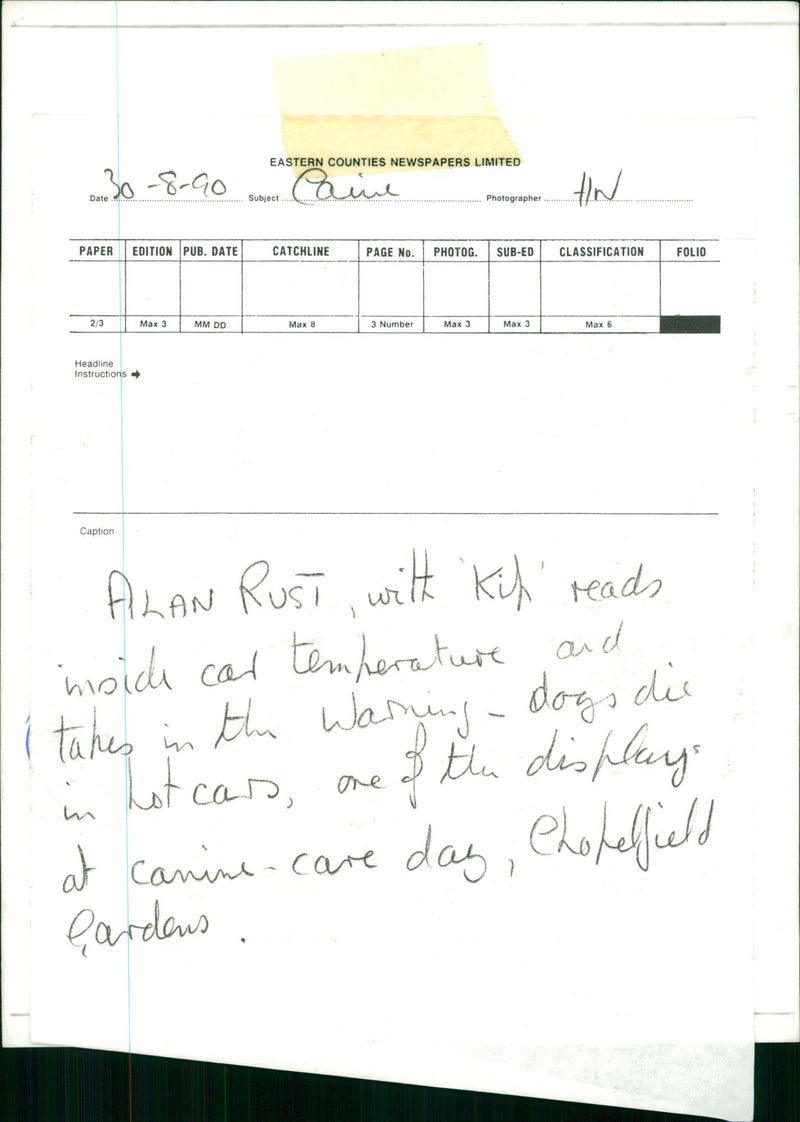 EASTERN COUNTIES NEWSPAPERS LIMITED
Date 30-8-90 Subject Caine Photographer HN
PAPER EDITION PUB. DATE CATCHLINE PAGE No. PHOTOG. SUB-ED CLASSIFICATION FOLIO
2/3 Max 3 MM DD Max 8 3 Number Max 3 Max 3 Max 6
Headline
Instructions ➔
Caption
ALAN RUST, with 'Kip' reads
inside car temperature and
takes in the warning - dogs die
in hot cars, one of the displays
at canine-care day, Chapelfield
Gardens.